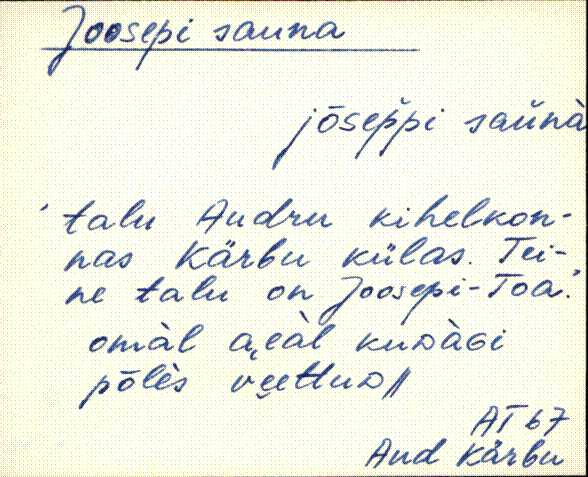 Joosepi sauna
jōsep̆pi saŭnà
'talu Audru kihelkon-
nas Kärbu külas. Tei-
ne talu on Joosepi-Toa.'
omàl aeàl
pōlès
AT 67
Aud Kärbu